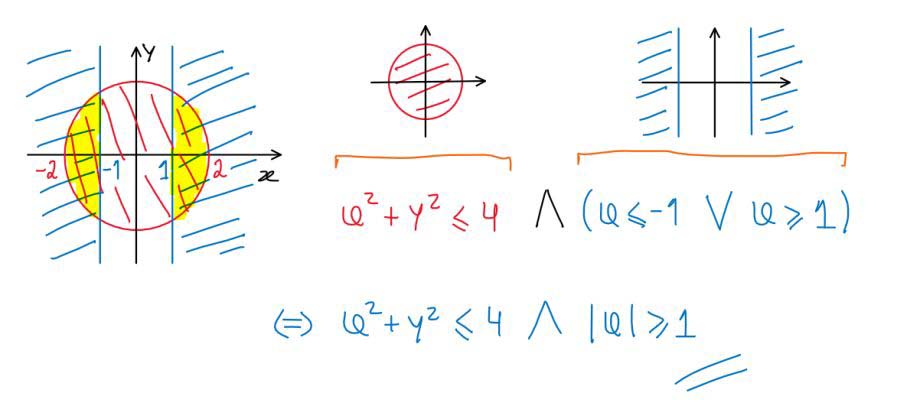 y
-2 -1 1 2 x
x² + y² ≤ 4 ∧ (x ≤ -1 ∨ x ≥ 1)
⇔ x² + y² ≤ 4 ∧ |x| ≥ 1